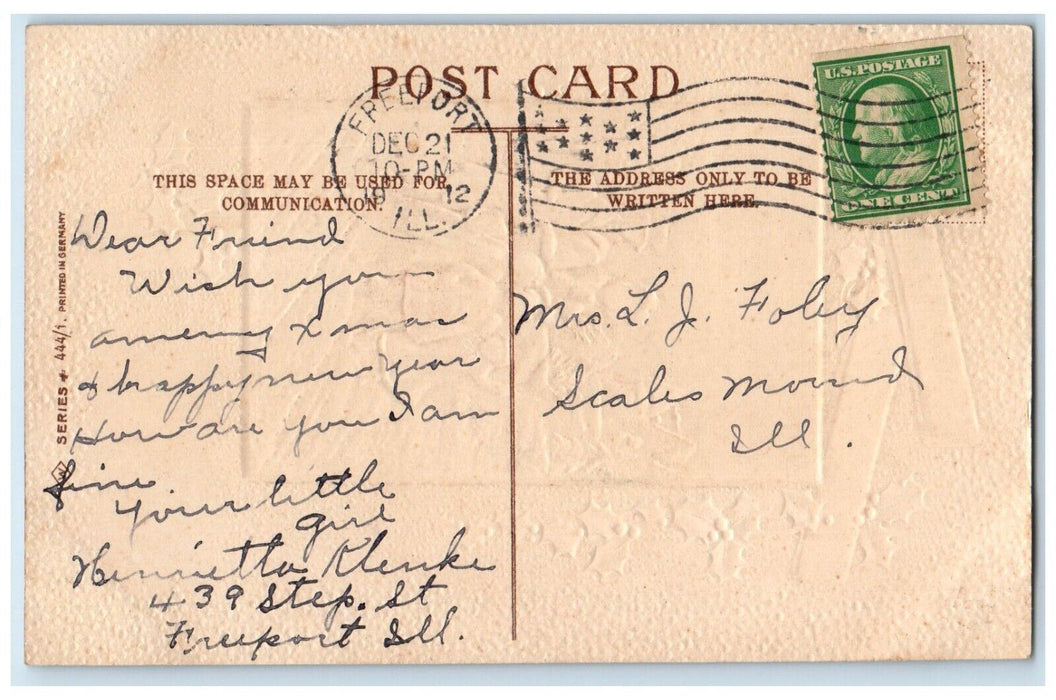 POST CARD
U.S. POSTAGE
ONE CENT
FREEPORT
DEC 21
10-PM
19 12
ILL.
THIS SPACE MAY BE USED FOR
COMMUNICATION.
THE ADDRESS ONLY TO BE
WRITTEN HERE.
SERIES 444/1. PRINTED IN GERMANY
Dear Friend
Wish you
a merry Xmas
& happy new year
How are you I am
fine
Your little
girl
Henrietta Klenke
439 Step. St
Freeport Ill.
Mrs. L. J. Foley
Scales Mound
Ill.